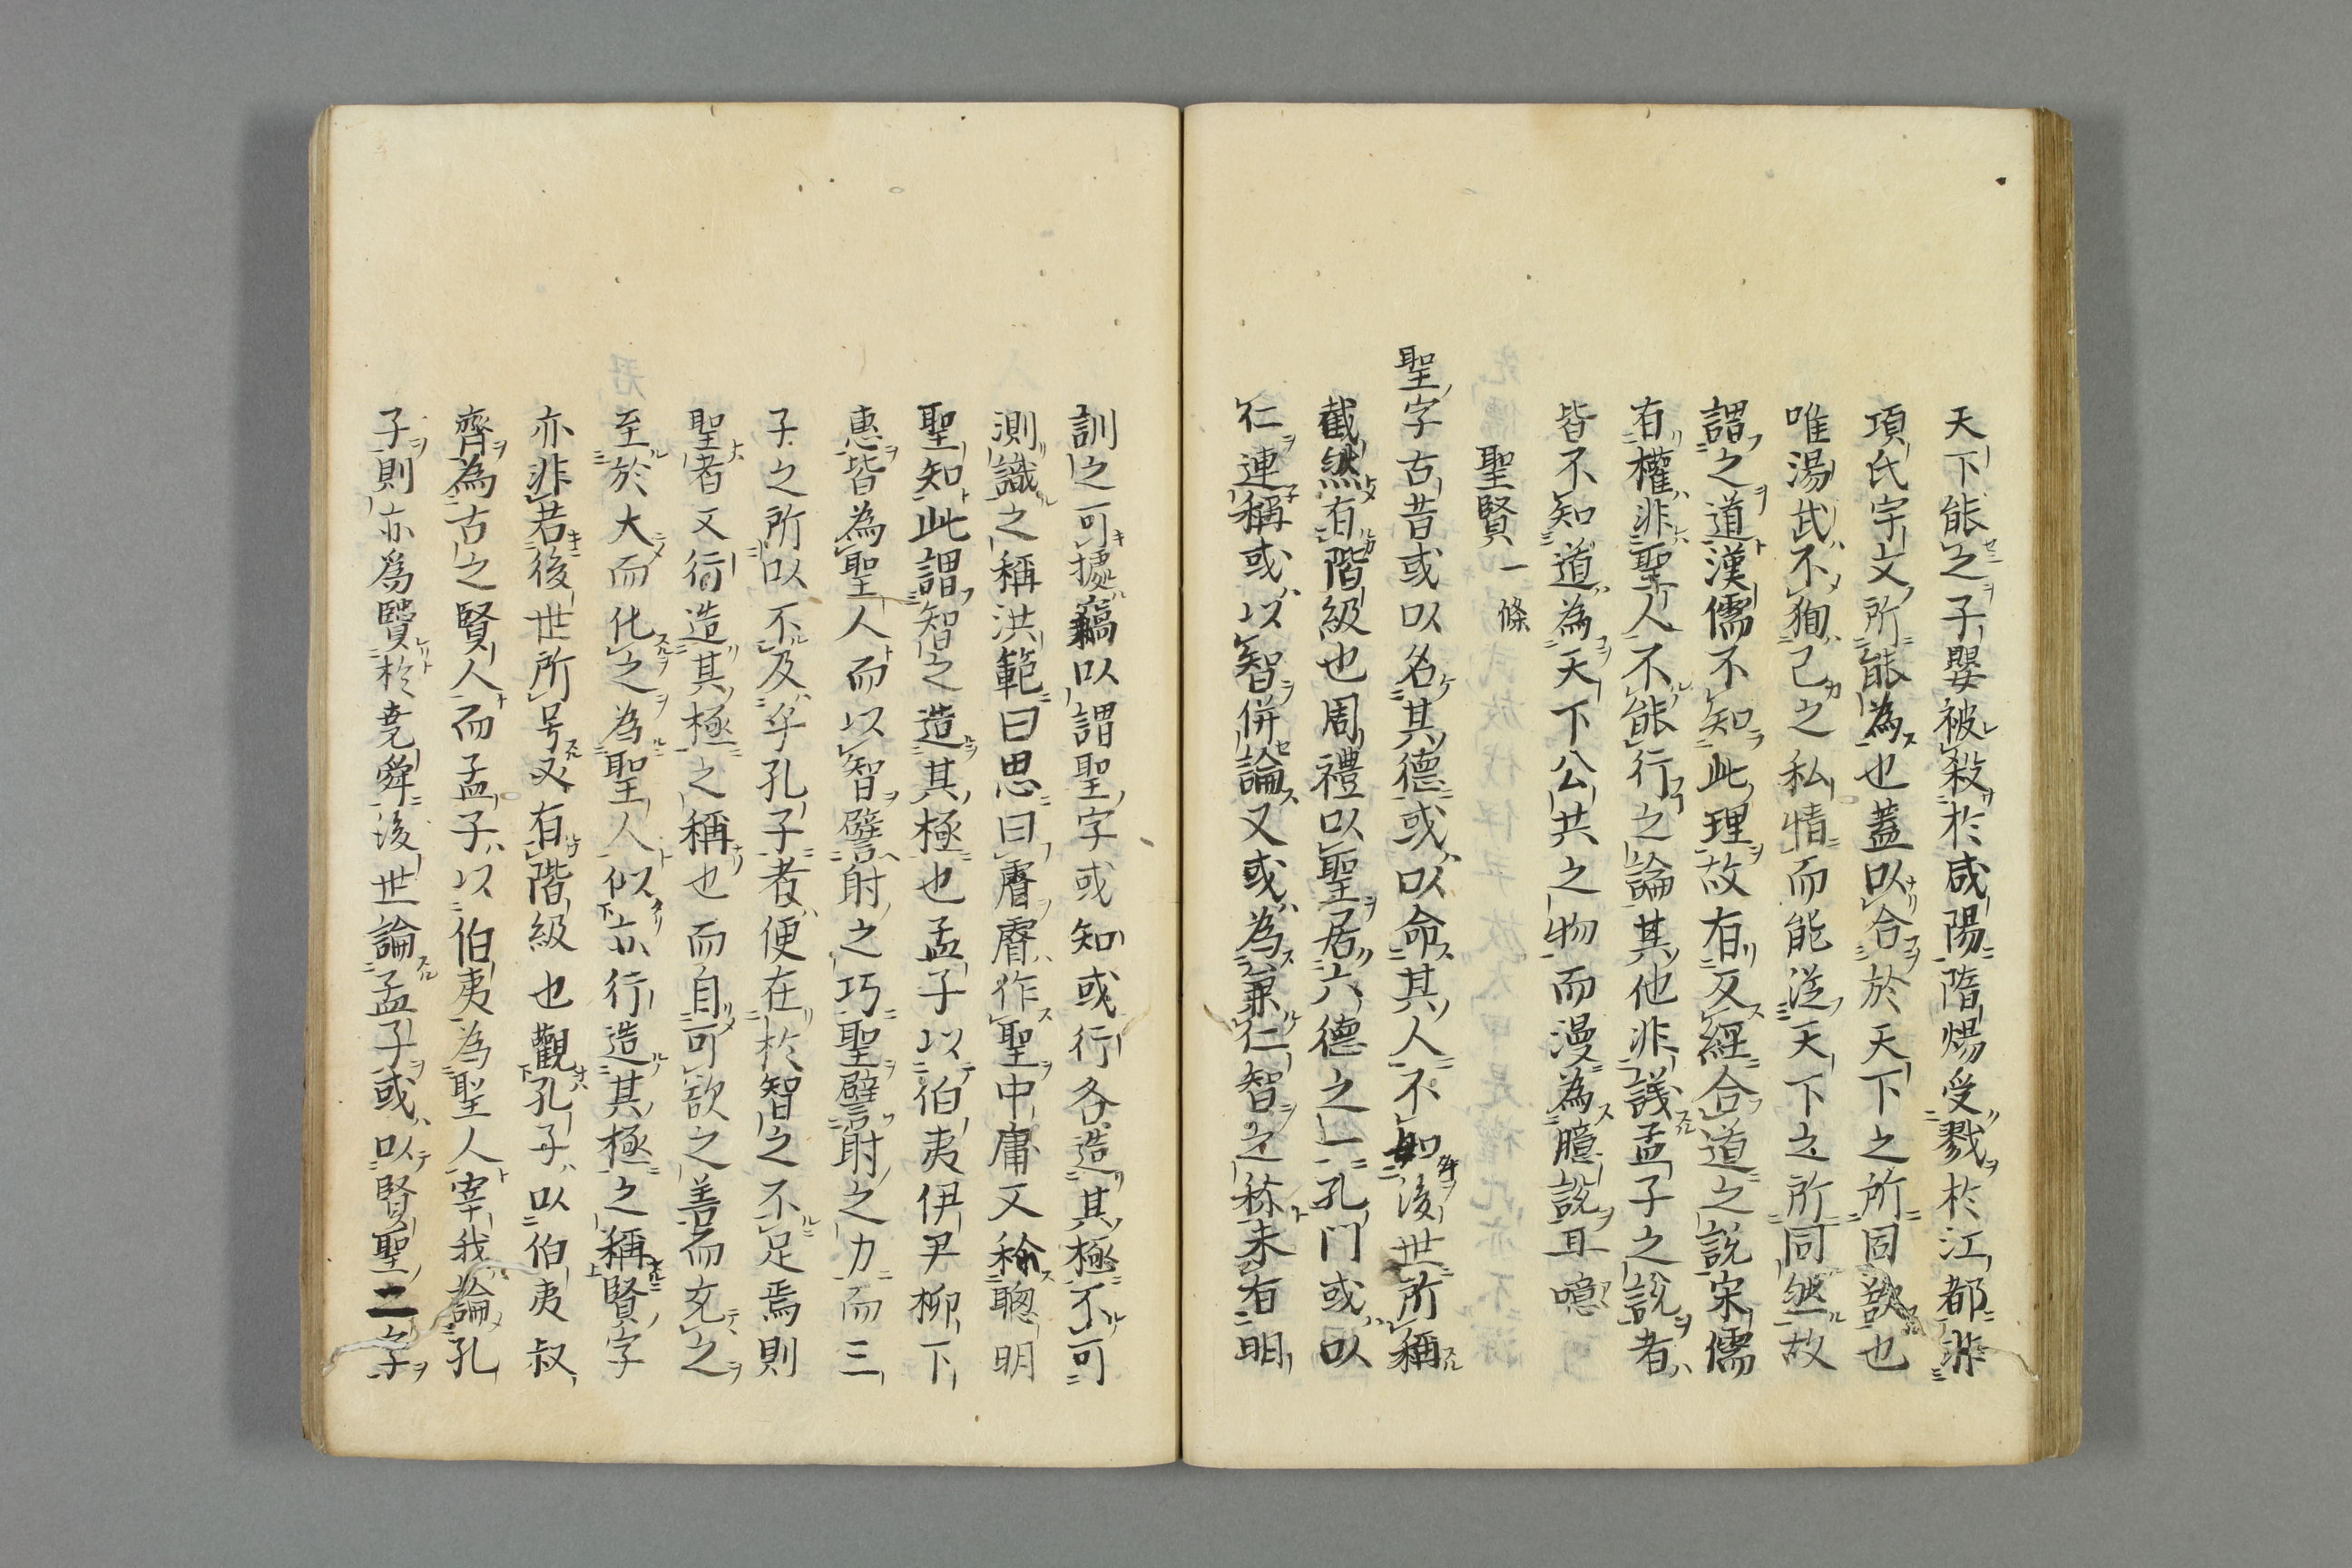 天下能之子嬰被殺於咸陽隋煬受戮於江都非
項氏宇文所能為也蓋以合於天下之所同欲也
唯湯武不狥己之私情而能從天下之所同然故
謂之道漢儒不知此理故有反經合道之說宋儒
有權非聖人不能行之論其他非議孟子之說者
皆不知道為天下公共之物而漫為臆說耳噫
聖賢一條
聖字古昔或以名其德或以命其人不如後世所稱
截然有階級也周禮以聖居六德之一孔门或以
仁連稱或以智併論又或為兼仁智之称未有明
訓之可據竊以謂聖字或知或行各造其極不可
測識之稱洪範曰思曰睿睿作聖中庸又称聰明
聖知此謂智之造其極也孟子以伯夷伊尹柳下
惠皆為聖人而以智譬射之巧聖譬射之力而三
子之所以不及乎孔子者便在於智之不足焉則
聖者又行造其極之稱也而自可欲之善而充之
至於大而化之為聖人似亦行造其極之稱賢字
亦非若後世所号又有階級也觀孔子以伯夷叔
齊為古之賢人而孟子以伯夷為聖人宰我論孔
子則亦爲賢於堯舜後世論孟子或以賢聖二字